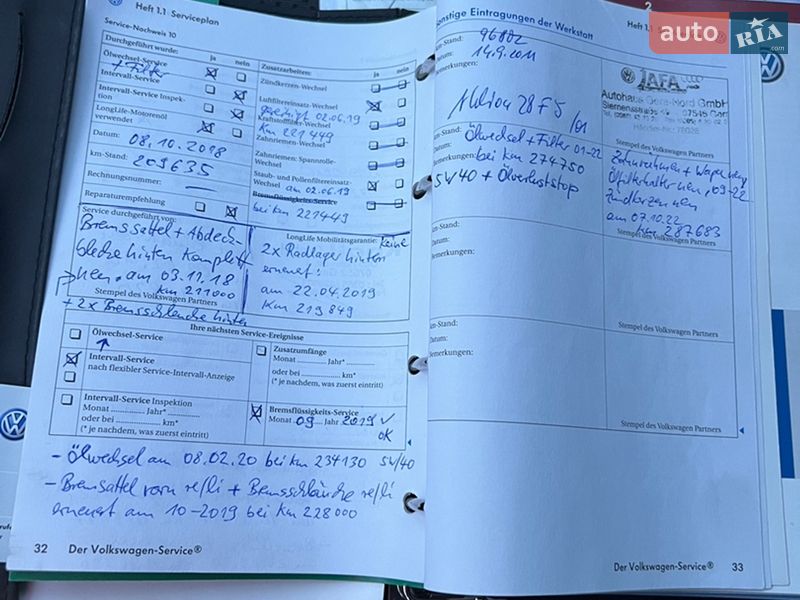 Heft 1.1 Serviceplan
Service-Nachweis 10
Durchgeführt wurde:
ja
nein
Ölwechsel-Service
+ Filter
Intervall-Service
Intervall-Service Inspektion
LongLife-Motorenöl verwendet
Datum: 08.10.2018
km-Stand: 209635
Rechnungsnummer: —
Reparaturempfehlung
Service durchgeführt von:
Bremssattel + Abdeck-
bleche hinten Komplett
neu. am 03.11.18
km 211000
Stempel des Volkswagen Partners
+ 2x Bremsschläuche hinten
Zusatzarbeiten:
ja
nein
Zündkerzen-Wechsel
Luftfiltereinsatz-Wechsel
02.06.19
Kraftstofffilter-Wechsel
km 221449
Zahnriemen-Wechsel
Zahnriemen- Spannrolle-Wechsel
Staub- und Pollenfiltereinsatz-Wechsel
am 02.06.19
Bremsflüssigkeits-Service
bei km 221449
LongLife Mobilitätsgarantie: Keine
2x Radlager hinten
erneuert:
am 22.04.2019
Km 219849
Ihre nächsten Service-Ereignisse
Ölwechsel-Service
Intervall-Service
nach flexibler Service-Intervall-Anzeige
Intervall-Service Inspektion
Monat ............... Jahr*...........
oder bei ............... km*
(* je nachdem, was zuerst eintritt)
Zusatzumfänge
Monat ............... Jahr*...........
oder bei ............... km*
(* je nachdem, was zuerst eintritt)
Bremsflüssigkeits-Service
Monat 09 Jahr 2019 ✓
OK
- Ölwechsel am 08.02.20 bei km 234130 5W/40
- Bremsattel vorn re/li + Bremsschläuche re/li
erneuert am 10-2019 bei Km 228000
32 Der Volkswagen-Service®
Sonstige Eintragungen der Werkstatt
Heft 1.1
km-Stand: 96802
Datum: 14.9.2011
Bemerkungen:
Aktion 28F5
/01
JAFA
Autohaus Gera-Nord GmbH
Stempel des Volkswagen Partners
km-Stand: Ölwechsel + Filter 01-22
Datum:
Bemerkungen: bei km 274750
5W/40 + Ölverluststop
Zahnriemen + Wapu neu
Ölfilterhalter neu, 09-22
Zündkerzen neu
am 07.10.22
km 287683
Stempel des Volkswagen Partners
km-Stand:
Datum:
Bemerkungen:
Stempel des Volkswagen Partners
km-Stand:
Datum:
Bemerkungen:
Stempel des Volkswagen Partners
Der Volkswagen-Service® 33
auto RIA
.com